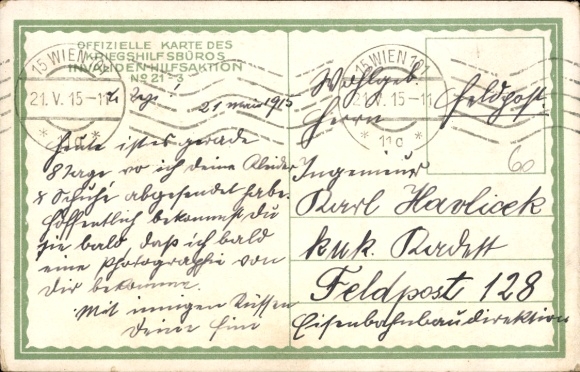 OFFIZIELLE KARTE DES
KRIEGSHILFSBÜROS
INVALIDEN-HILFSAKTION
No 21-3
15 WIEN 101
21.V.15-11
* 11c *
15 WIEN 101
21.V.15-11
* 11c *
21 Mai 1915
Heute ist es gerade
8 Tage wo ich deine Kleider
& Schuhe abgesendet habe.
Hoffentlich bekommst du
sie bald, daß ich bald
eine Photographie von
dir bekomme.
Mit innigen Küssen
Deine
Wohlgeb
Feldpost
Herrn
Ingenieur
Karl Havlicek
kuk. Kadett
Feldpost 128
Eisenbahnbaudirektion
60